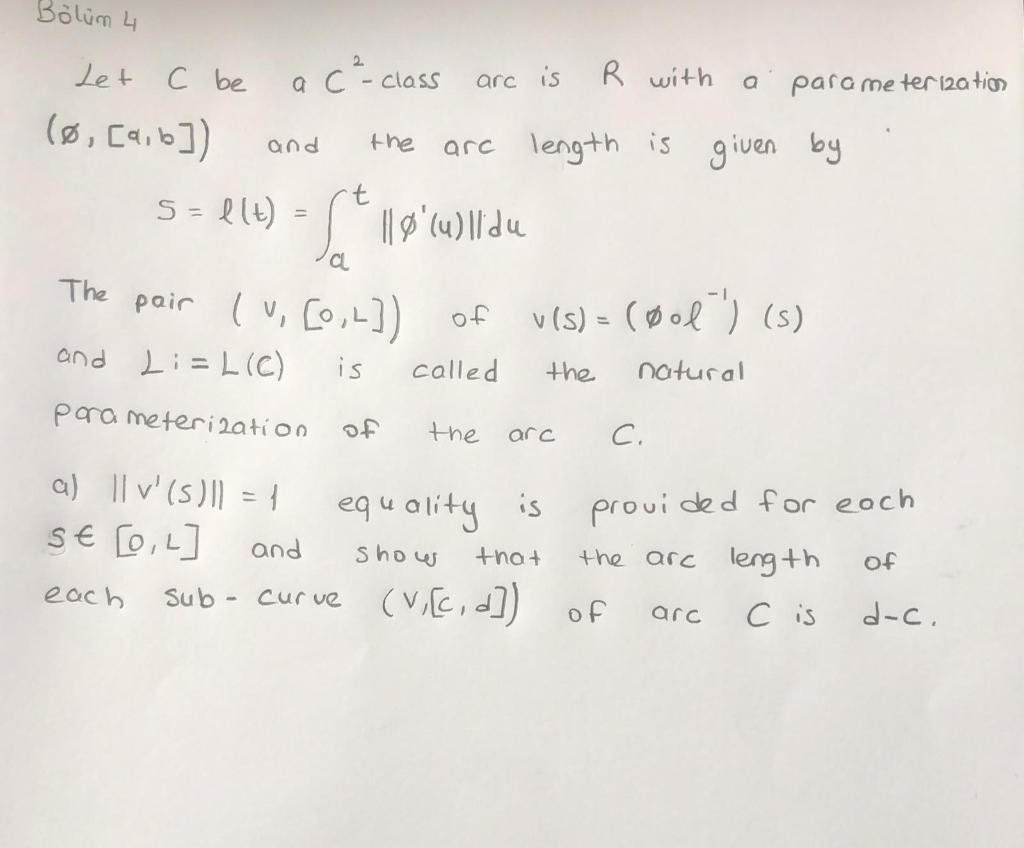 Bölüm 4
Let C be a C²-class arc is R with a parameterization
(ø, [a,b]) and the arc length is given by
S = l(t) = ∫ₐᵗ ||ø'(u)||du
The pair (v, [0,L]) of v(s) = (ø o l⁻¹) (s)
and L:= L(C) is called the natural
parameterization of the arc C.
a) ||v'(s)|| = 1 equality is provided for each
s ∈ [0,L] and show that the arc length of
each sub-curve (v,[c,d]) of arc C is d-c.